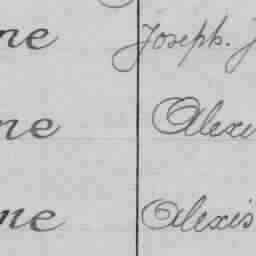 ne Joseph. J
ne Alexi
me Alexis